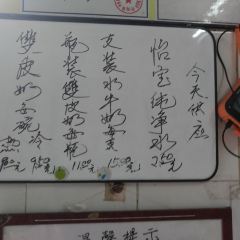 今天供应
怡宝纯净水2.50元
支装水牛奶每支15.00元
瓶装雙皮奶每瓶11.00元
雙皮奶每碗
冷9.50元
热
温馨提示